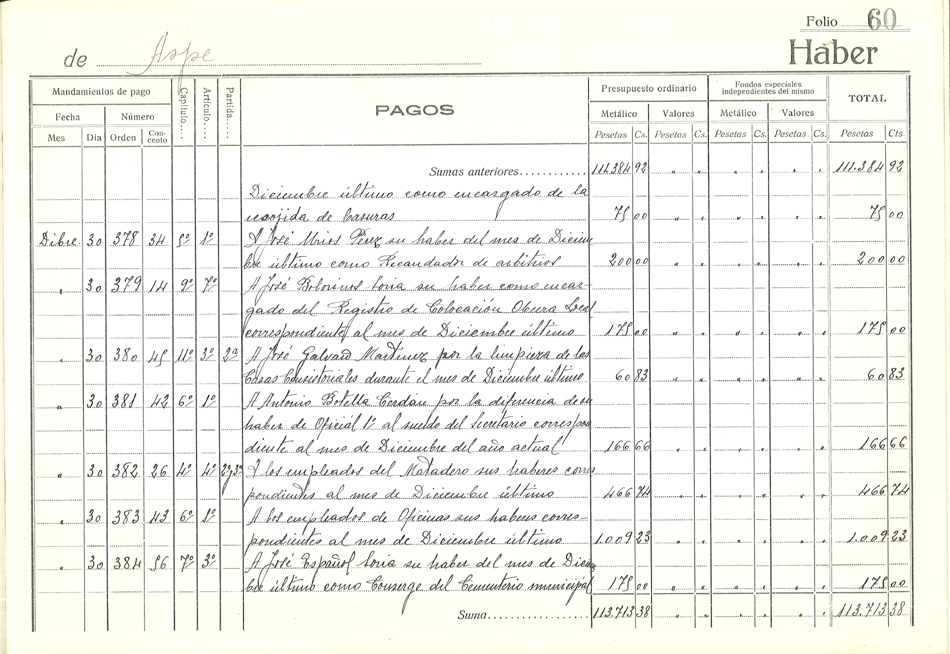 Folio 60
de Aspe
Haber
Mandamientos de pago
Fecha Número
Mes Dia Orden Concepto
Capítulo....
Artículo....
Partida....
PAGOS
Presupuesto ordinario
Metálico Valores
Pesetas Cs. Pesetas Cs.
Fondos especiales
independientes del mismo
Metálico Valores
Pesetas Cs. Pesetas Cs.
TOTAL
Pesetas Cts.
Sumas anteriores............ 111.384 92 " " " " " " 111.384 92
Diciembre último como encargado de la
recojida de basuras 75 00 " " " " " " 75 00
Dibre. 30 378 34 5º 1º A José Mrios Perez su haber del mes de Diciem
bre último como Recaudador de arbitrios 200 00 " " " " " " 200 00
" 30 379 14 9º 7º A José Bolorinos Soria su haber como encar-
gado del Registro de Colocación Obrera Local
correspondiente al mes de Diciembre último 175 00 " " " " " " 175 00
" 30 380 45 11º 3º 2ª A José Galvañ Martinez por la limpieza de las
Casas Consistoriales durante el mes de Diciembre último 60 83 " " " " " " 60 83
" 30 381 42 6º 1º A Antonio Botella Cerdán por la diferencia de su
haber de Oficial 1º al sueldo del Secretario correspon
diente al mes de Diciembre del año actual 166 66 " " " " " " 166 66
" 30 382 26 4º 4º 2ªy3ª A los empleados del Matadero sus haberes corres
pondientes al mes de Diciembre último 466 74 " " " " " " 466 74
" 30 383 43 6º 1º A los empleados de Oficinas sus haberes corres-
pondientes al mes de Diciembre último 1.009 23 " " " " " " 1.009 23
" 30 384 56 7º 3º A José Español Soria su haber del mes de Diciem
bre último como Conserge del Cementerio municipal 175 00 " " " " " " 175 00
Suma.................. 113.713 38 " " " " " " 113.713 38